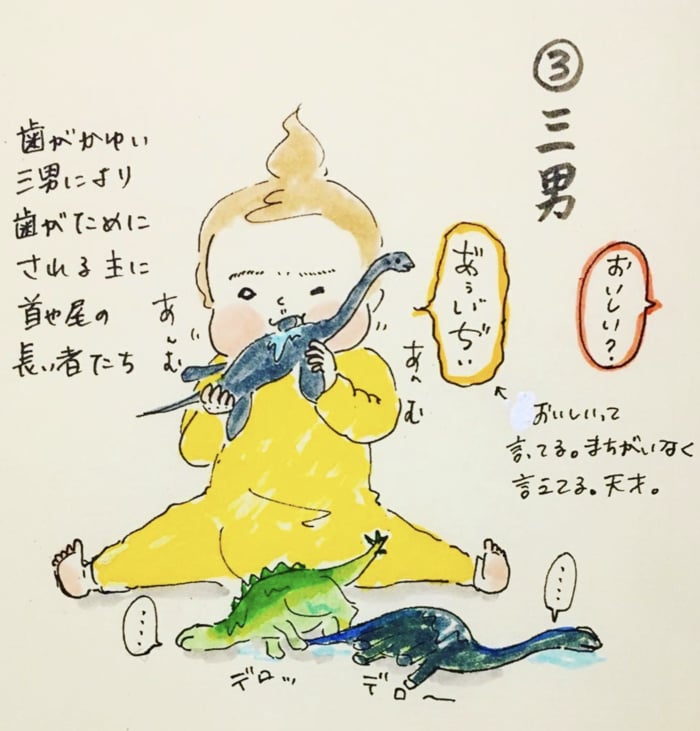 ③三男
おいしい?
おぅいぢぃ
おいしいって
言ってる。まちがいなく
言えてる。天才。
歯がかゆい
三男により
歯がために
される主に
首や尾の
長い者たち
あ〜む
あ〜む
・・・・
・・・・
デロッ
デロ〜